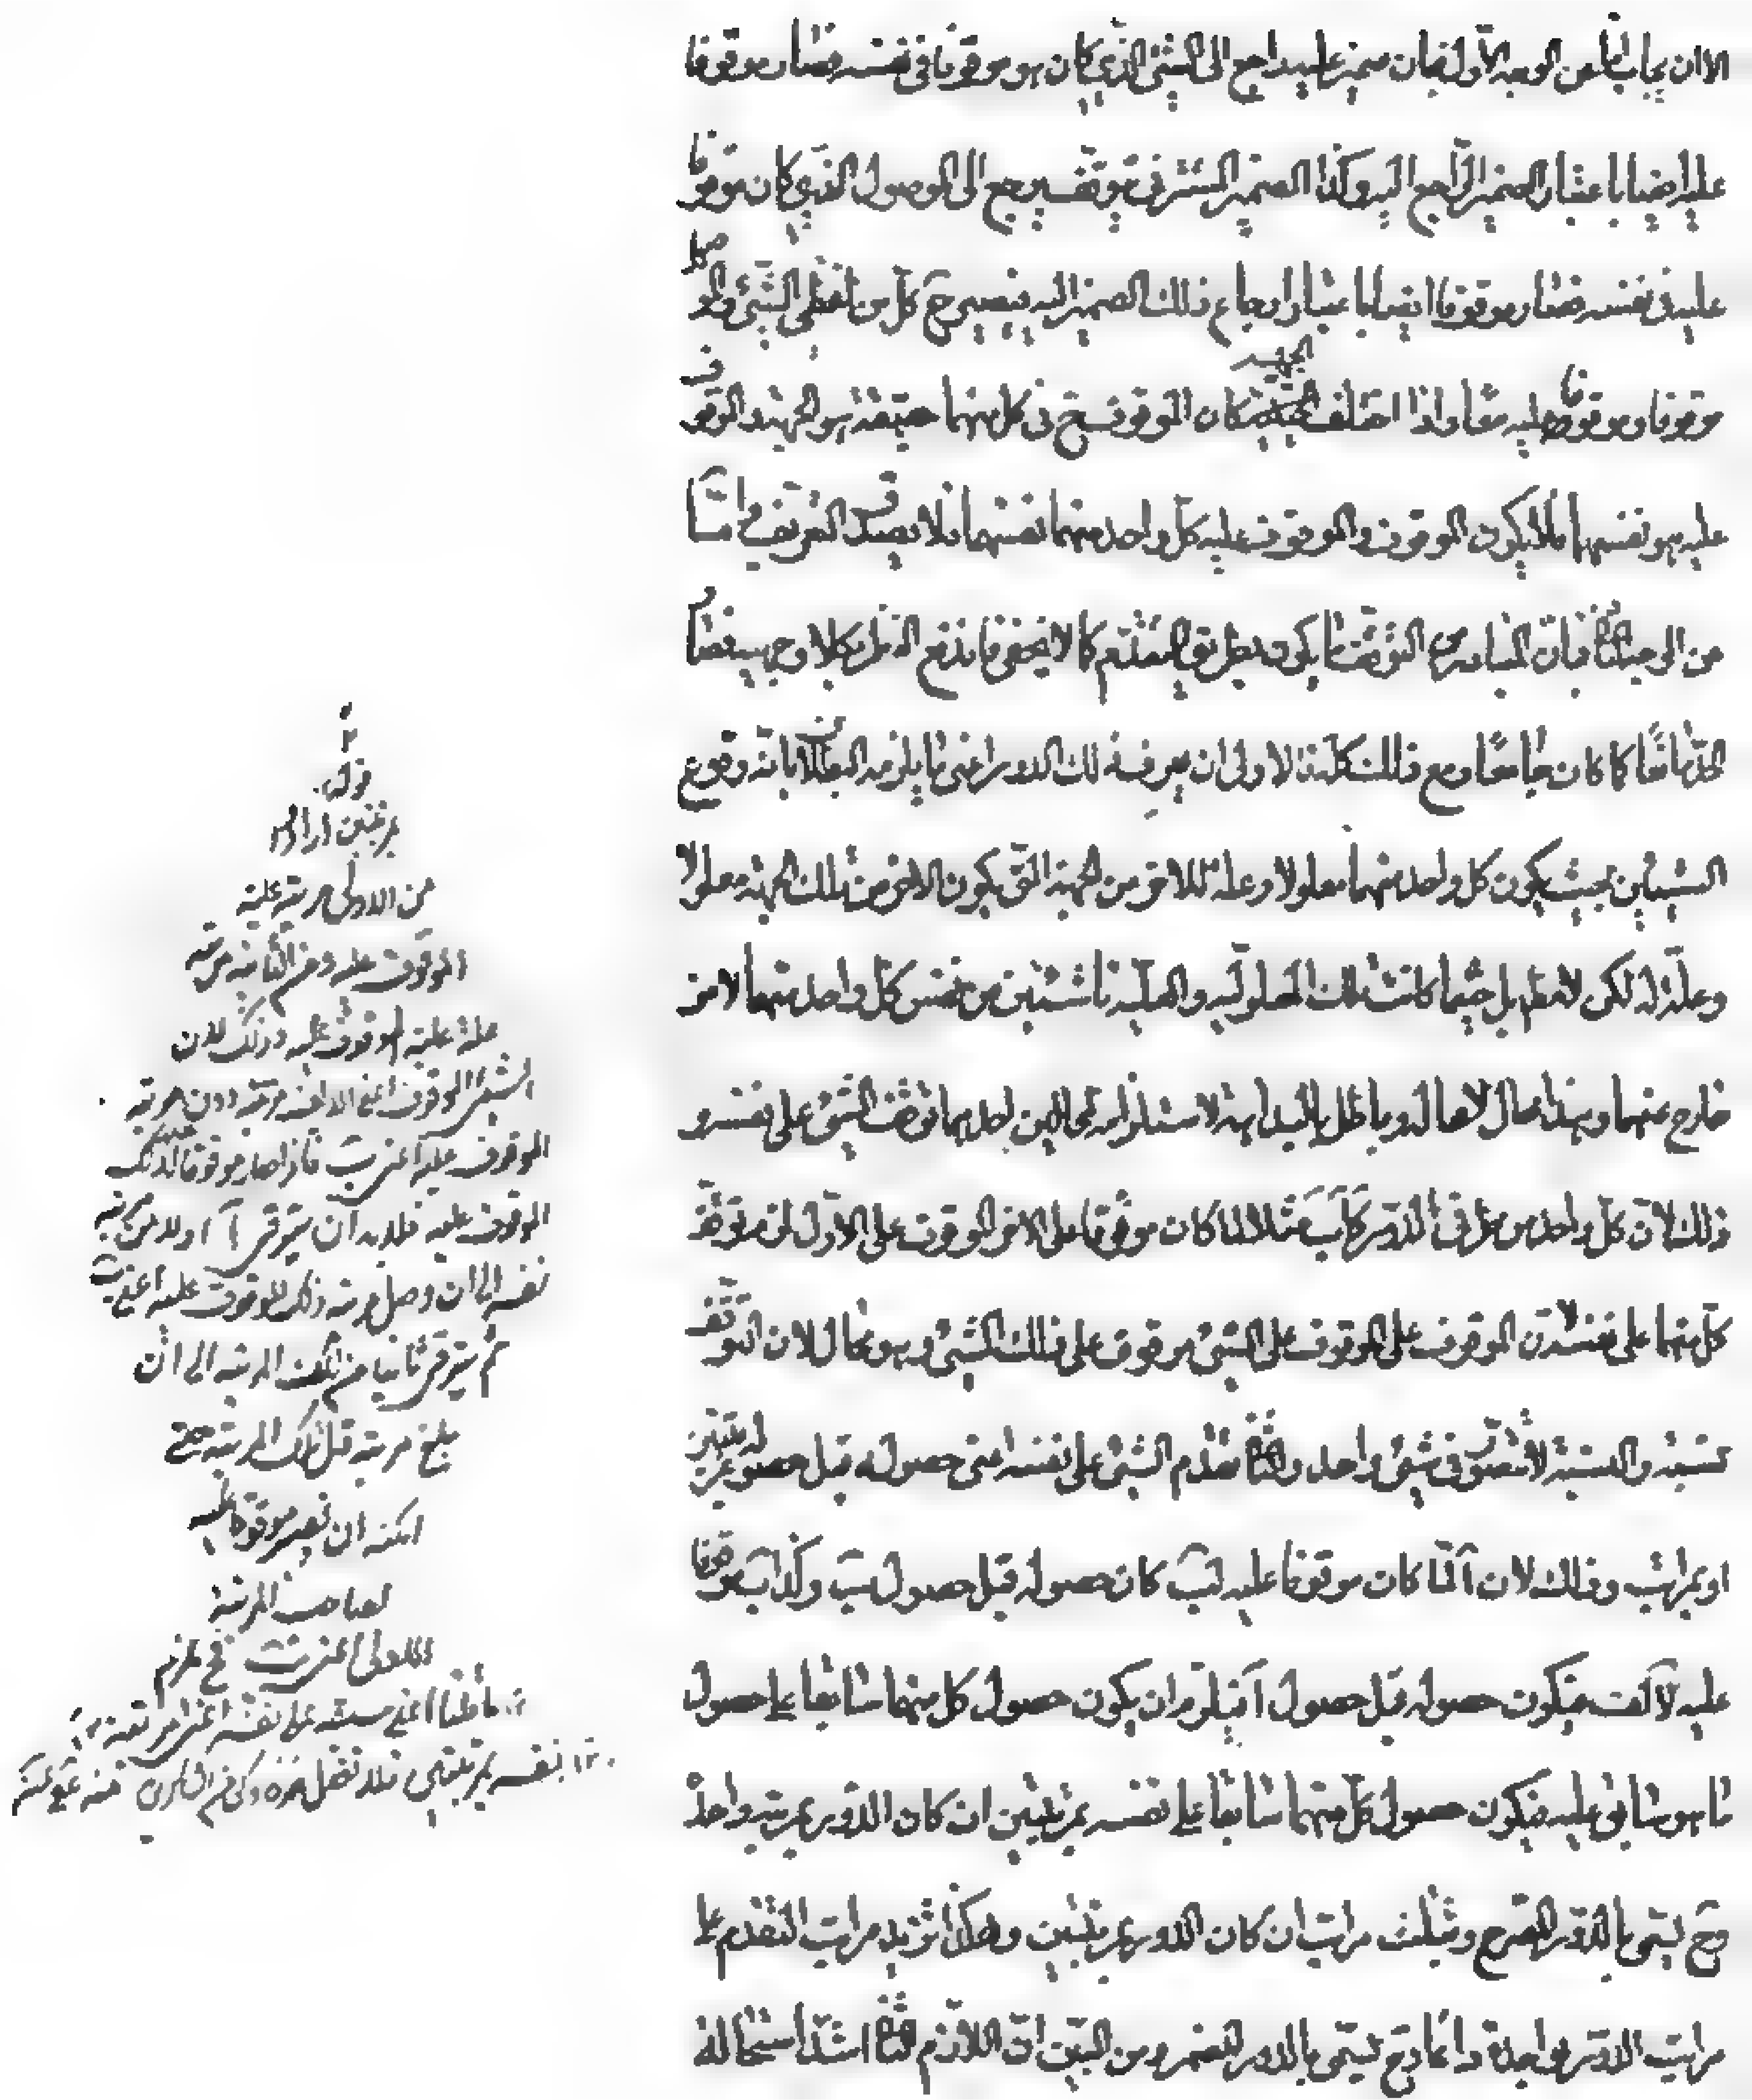 الا ان يجاب ايضا عن الوجه الاول بان ضمير عليه راجع الى الشئ الذي كان هو موقوفا في نفسه فصار موقوفا
عليه ايضا باعتبار الضمير الراجع اليه وكذا الضمير المستتر في توقف يرجع الى الموصول الذي كان موقوفا
عليه في نفسه فصار موقوفا ايضا باعتبار ارجاع ذلك الضمير اليه فيصير ح كل من لفظى الشئ والموصول
موقوفا وموقوفا عليه معا واذا اختلف الجهة كان الموقوف ح في كل منهما حقيقة هو الجهة والموقوف
عليه هو نفسهما لا يكون الموقوف والموقوف عليه كل واحد منهما نفسهما فلا يصدق التعريف ح
من الحيثية فان المتبادر من التوقف ما يكون بطريق التقدم كما لا يخفى فاندفع الدخل بكلا وجهيه فصار
الحد مانعا كما كان جامعا ومع ذلك كله الاولى ان يعرف ذلك الدور اعنى ما يلزمه البطلان بانه وقوع
الشيئين بحيث يكون كل واحد منهما معلولا وعلة للاخر من الجهة التي يكون الاخر من تلك الجهة معلولا
وعلة له لكن لا مطلقا بل حيثما كانت تلك المعلولية والعلية ناشئتين من نفس كل واحد منهما لا من
خارج عنهما وهذا محال لا محالة وباطل بالبداهة لاستلزامه محالين احدهما توقف الشئ على نفسه و
ذلك لان كل واحد من طرفي الدور كآ وب مثلا لما كان موقوفا على الاخر الموقوف على الاول لزم توقف
كل منهما على نفسه لان الموقوف على الموقوف على الشئ موقوف على ذلك الشئ وهو محال لان التوقف
نسبة والنسبة لا تتصور في شئ واحد والثاني تقدم الشئ على نفسه اعنى حصوله قبل حصوله بمرتبتين
او بمراتب وذلك لان آ لما كان موقوفا عليه لب كان حصوله قبل حصول ب وكذا ب موقوفا
عليه لآ فيكون حصوله قبل حصول آ فيلزم ان يكون حصول كل منهما سابقا على حصول
ما هو سابق عليه فيكون حصول كل منهما سابقا على نفسه بمرتبتين ان كان الدور بمرتبة واحدة
وح يسمى بالدور المصرح وبثلث مراتب ان كان الدور بمرتبتين وهكذا تزيد مراتب التقدم على
مراتب الدور بواحدة دائما وح يسمى بالدور المضمر ومن البين ان اللازم الثاني اشد استحالة
قوله
بمرتبتين اراد
من الاولى مرتبة علية
الموقوف عليه ومن الثانية مرتبة
علة علية الموقوف عليه وذلك لان
الشئ الموقوف اعنى الالف مرتبته دون مرتبة
الموقوف عليه اعنى ب فاذا صار موقوفا عليه لذلك
الموقوف عليه فلا بد ان يترقى آ اولا من مرتبة
نفسه الى ان وصل مرتبة ذلك الموقوف عليه اعنى ب
ثم يترقى ثانيا من تلك المرتبة الى ان
بلغ مرتبة قبل تلك المرتبة حتى
امكنه ان يصير موقوفا عليه
لصاحب المرتبة
الاولى اعنى ب فح يلزم
ما قلنا اعنى سبقه على نفسه
نفسه بمرتبتين فلا تغفل هذا وكن من الشاكرين منه عفي عنه